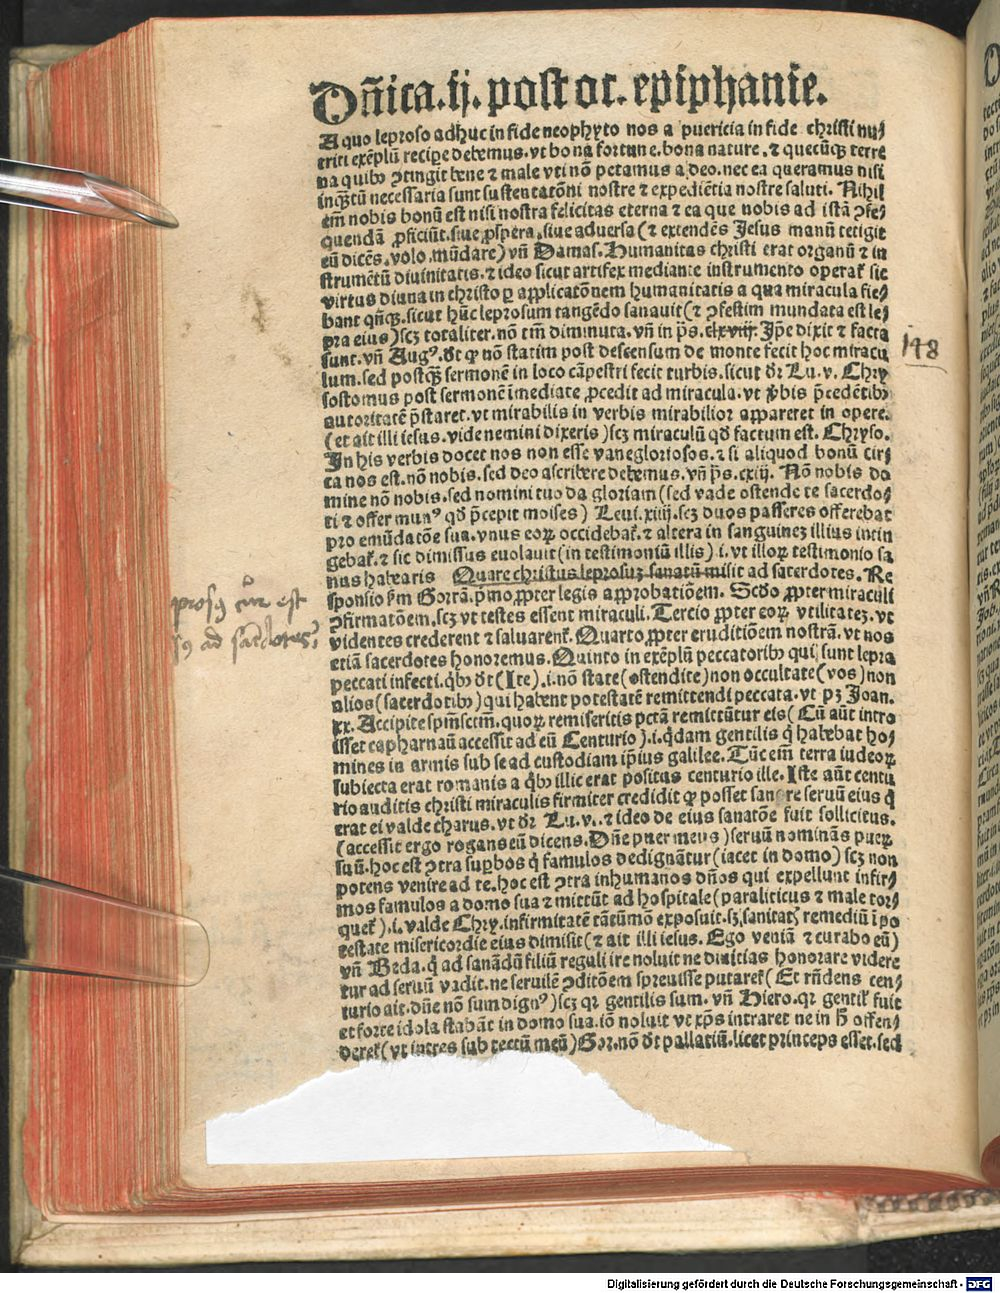 Dñica.ij.post oc.epiphanie.
A quo leproso adhuc in fide neophyto nos a puericia in fide christi nu⸗
triti exẽplũ recipe debemus.vt bona fortune.bona nature.⁊ quecũqꝫ terre
na quibꝰ ꝯtingit bene ⁊ male vti nõ petamus a deo.nec ea queramus nisi
inqꝫtũ necessaria sunt sustentatõni nostre ⁊ expediẽtia nostre saluti. Nihil
em̃ nobis bonũ est nisi nostra felicitas eterna ⁊ ea que nobis ad istã ꝯse⸗
quendã ꝓficiũt.siue ꝓspera.siue aduersa(⁊ extendẽs Jesus manũ tetigit
eũ dicẽs.volo.mũdare)vñ Damas.Humanitas christi erat organũ ⁊ in
strumẽtũ diuinitatis.⁊ ideo sicut artifex mediante instrumento operat᷑ sic
virtus diuina in christo ꝑ applicatõnem humanitatis a qua miracula fie⸗
bant qñqꝫ.sicut hũc leprosum tangẽdo sanauit(⁊ ꝯfestim mundata est le⸗
pra eius)scꝫ totaliter.nõ tm̃ diminuta.vñ in p̃s. clxviij. Jp̃e dixit ⁊ facta
148
sunt.vñ Augꝰ.d̃t ꝙ nõ statim post descensum de monte fecit hoc miracu
lum.sed postqꝫ sermonẽ in loco cãpestri fecit turbis.sicut d̃r Lu.v. Chry
sostomus post sermonẽ ĩmediate ꝓcedit ad miracula.vt v̓bis p̃cedẽtibꝰ
autoritatẽ p̃staret.vt mirabilis in verbis mirabilior appareret in opere.
(et ait illi iesus.vide nemini dixeris)scꝫ miraculũ qd̃ factum est. Chryso.
In his verbis docet nos non esse vanegloriosos.⁊ si aliquod bonũ cir⸗
ca nos est.nõ nobis.sed deo ascribere debemus.vñ p̃s.cxiij. Nõ nobis do
mine nõ nobis.sed nomini tuo da gloriam(sed vade ostende te sacerdo⸗
ti ⁊ offer munꝰ qd̃ p̃cepit moises) Leui.xiiij.scꝫ duos passeres offerebat
pro emũdatõe sua.vnus eoꝝ occidebat᷑.⁊ altera in sanguinez illius intin
gebat᷑.⁊ sic dimissus euolauit(in testimoniũ illis).i.vt illoꝝ testimonio sa
nus habearis Quare christus leprosuꝫ sanatũ misit ad sacerdotes. Re
sponsio ẜm Gorrã.p̃mo ꝓpter legis approbatiõem. Scd̃o ꝓpter miraculi
ꝯfirmatõem.scꝫ vt testes essent miraculi. Tercio ꝓpter eoꝝ vtilitateꝫ.vt
videntes crederent ⁊ saluarent᷑. Quarto ꝓpter eruditiõem nostrã.vt nos
etiã sacerdotes honoremus. Quinto in exẽplũ peccatoribꝰ qui sunt lepra
peccati infecti.q̃bꝰ d̃t(Ite).i.nõ state(ostendite)non occultate(vos)non
alios(sacerdotibꝰ)qui habent potestatẽ remittendi peccata.vt pꝫ Joan.
xx. Accipite spm̃sctm̃.quoꝝ remiseritis pctã remittũtur eis(Cũ aũt intro
isset capharnaũ accessit ad eũ Centurio).i.q̃dam gentilis q̃ habebat ho⸗
mines in armis sub se ad custodiam ip̃ius galilee. Tũc em̃ terra iudeoꝝ
subiecta erat romanis a q̃bꝰ illic erat positus centurio ille. Iste aũt centu
rio auditis christi miraculis firmiter credidit ꝙ posset sanare seruũ eius q̃
erat ei valde charus.vt d̃r Lu.vi.⁊ ideo de eius sanatõe fuit sollicitus.
(accessit ergo rogans eũ dicens.Dñe puer meus)seruũ nominãs pueꝝ
suũ.hoc est ꝯtra suꝑbos q̃ famulos dedignãtur(iacet in domo)scꝫ non
potens venire ad te.hoc est ꝯtra inhumanos dños qui expellunt infir⸗
mos famulos a domo sua ⁊ mittũt ad hospitale(paraliticus ⁊ male tor⸗
quet᷑).i.valde Chry.infirmitatẽ tãtũmõ exposuit.sꝫ sanitatꝭ remediũ ĩ po
testate misericordie eius dimisit(⁊ ait illi iesus. Ego veniã ⁊ curabo eũ)
vñ Beda.q̃ ad sanãdũ filiũ reguli ire noluit ne diuitias honorare videre
tur ad seruũ vadit.ne seruilẽ ꝯditõem spreuisse putaret᷑( Et rñdens cen⸗
turio ait.dñe nõ sum dignꝰ)scꝫ qꝛ gentilis sum. vñ Hiero.qꝛ gentil᷑ fuit
et forte idola stabãt in domo sua.iõ noluit vt xp̃s intraret ne in h̃ offen⸗
deret᷑(vt intres sub tectũ meũ)Gor.nõ d̃t pallatiũ.licet princeps esset.sed
Digitalisierung gefördert durch die Deutsche Forschungsgemeinschaft - DFG